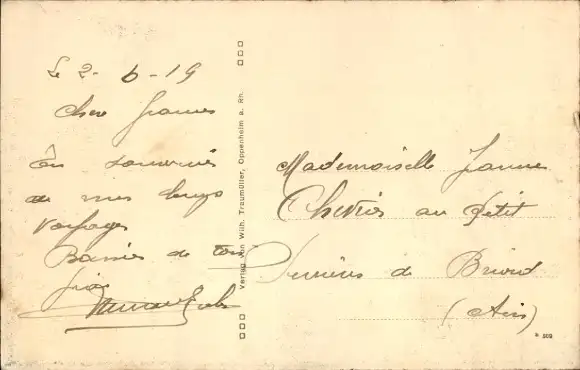 Le 2-6-19
Chere Jeanne
En souvenir
de mes longs
voyages
Baisers de ton
Verlag von Wilh. Traumüller, Oppenheim a. Rh.
Mademoiselle Jeanne
au Petit
de Briord
(Ain)
* 509